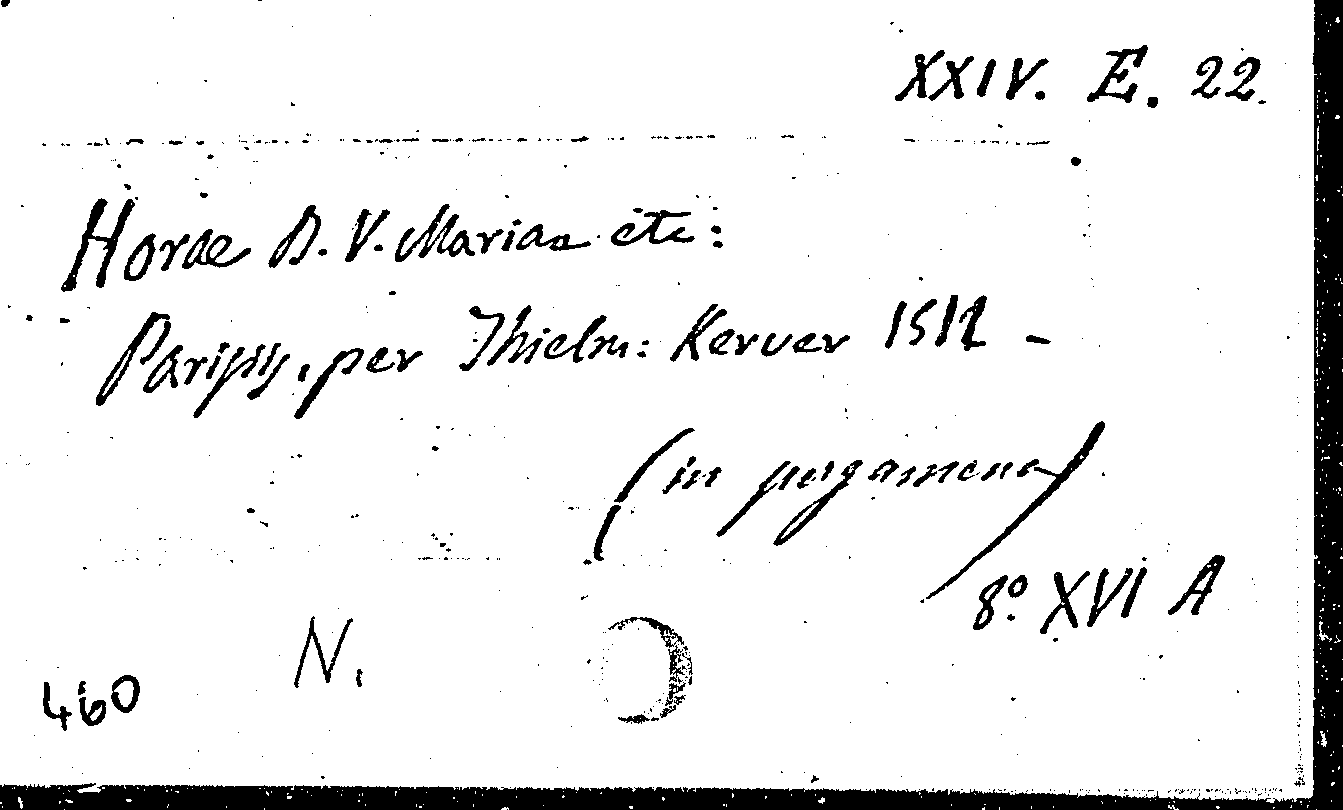 XXIV. E. 22.
Horae B. V. Mariae etc:
Parisijs, per Thielm: Kerver 1512 -
(in pergameno)
8º XVI A
N.
460